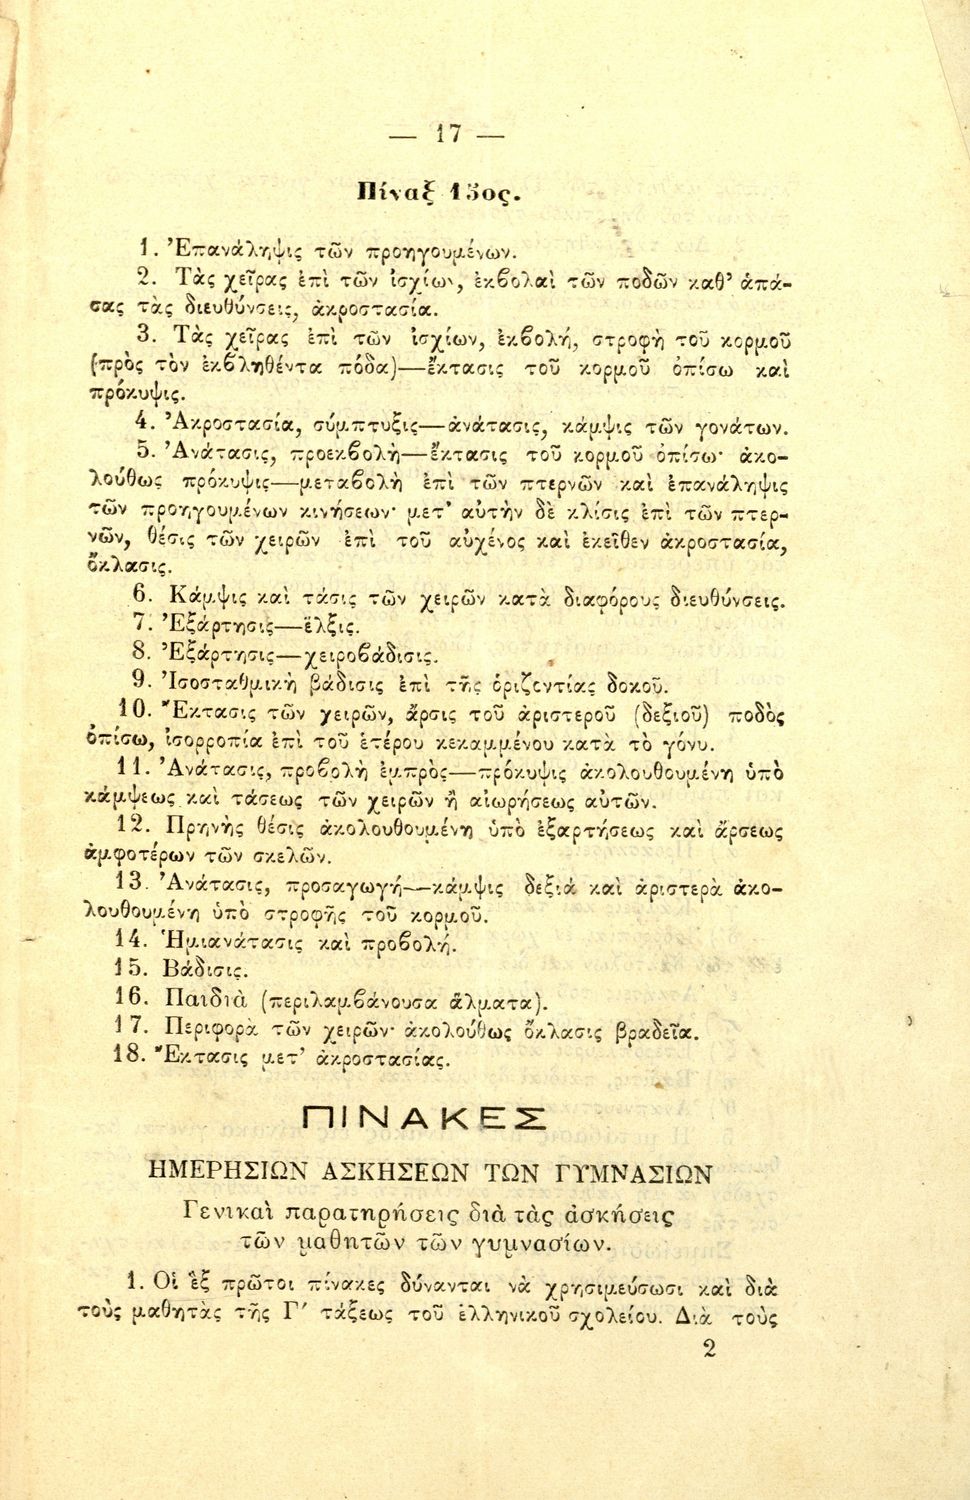 — 17 —
Πίναξ 15ος.
1. Ἐπανάληψις τῶν προηγουμένων.
2. Τὰς χεῖρας ἐπὶ τῶν ἰσχίων, ἐκβολαὶ τῶν ποδῶν καθ' ἁπά-
σας τὰς διευθύνσεις, ἀκροστασία.
3. Τὰς χεῖρας ἐπὶ τῶν ἰσχίων, ἐκβολή, στροφὴ τοῦ κορμοῦ
(πρὸς τὸν ἐκβληθέντα πόδα)—ἔκτασις τοῦ κορμοῦ ὀπίσω καὶ
πρόκυψις.
4. Ἀκροστασία, σύμπτυξις—ἀνάτασις, κάμψις τῶν γονάτων.
5. Ἀνάτασις, προεκβολὴ—ἔκτασις τοῦ κορμοῦ ὀπίσω· ἀκο-
λούθως πρόκυψις—μεταβολὴ ἐπὶ τῶν πτερνῶν καὶ ἐπανάληψις
τῶν προηγουμένων κινήσεων· μετ' αὐτὴν δὲ κλίσις ἐπὶ τῶν πτερ-
νῶν, θέσις τῶν χειρῶν ἐπὶ τοῦ αὐχένος καὶ ἐκεῖθεν ἀκροστασία,
ὄκλασις.
6. Κάμψις καὶ τάσις τῶν χειρῶν κατὰ διαφόρους διευθύνσεις.
7. Ἐξάρτησις—ἕλξις.
8. Ἐξάρτησις—χειροβάδισις.
9. Ἰσοσταθμικὴ βάδισις ἐπὶ τῆς ὁριζοντίας δοκοῦ.
10. Ἔκτασις τῶν χειρῶν, ἄρσις τοῦ ἀριστεροῦ (δεξιοῦ) ποδὸς
ὀπίσω, ἰσορροπία ἐπὶ τοῦ ἑτέρου κεκαμμένου κατὰ τὸ γόνυ.
11. Ἀνάτασις, προβολὴ ἐμπρὸς—πρόκυψις ἀκολουθουμένη ὑπὸ
κάμψεως καὶ τάσεως τῶν χειρῶν ἢ αἰωρήσεως αὐτῶν.
12. Πρηνὴς θέσις ἀκολουθουμένη ὑπὸ ἐξαρτήσεως καὶ ἄρσεως
ἀμφοτέρων τῶν σκελῶν.
13. Ἀνάτασις, προσαγωγή—κάμψις δεξιὰ καὶ ἀριστερὰ ἀκο-
λουθουμένη ὑπὸ στροφῆς τοῦ κορμοῦ.
14. Ἡμιανάτασις καὶ προβολή.
15. Βάδισις.
16. Παιδιὰ (περιλαμβάνουσα ἅλματα).
17. Περιφορὰ τῶν χειρῶν· ἀκολούθως ὄκλασις βραδεῖα.
18. Ἔκτασις μετ' ἀκροστασίας.
ΠΙΝΑΚΕΣ
ΗΜΕΡΗΣΙΩΝ ΑΣΚΗΣΕΩΝ ΤΩΝ ΓΥΜΝΑΣΙΩΝ
Γενικαὶ παρατηρήσεις διὰ τὰς ἀσκήσεις
τῶν μαθητῶν τῶν γυμνασίων.
1. Οἱ ἓξ πρῶτοι πίνακες δύνανται νὰ χρησιμεύσωσι καὶ διὰ
τοὺς μαθητὰς τῆς Γ′ τάξεως τοῦ ἑλληνικοῦ σχολείου. Διὰ τοὺς
2